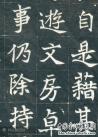 自是藉甚
遊文房卓
事仍除持